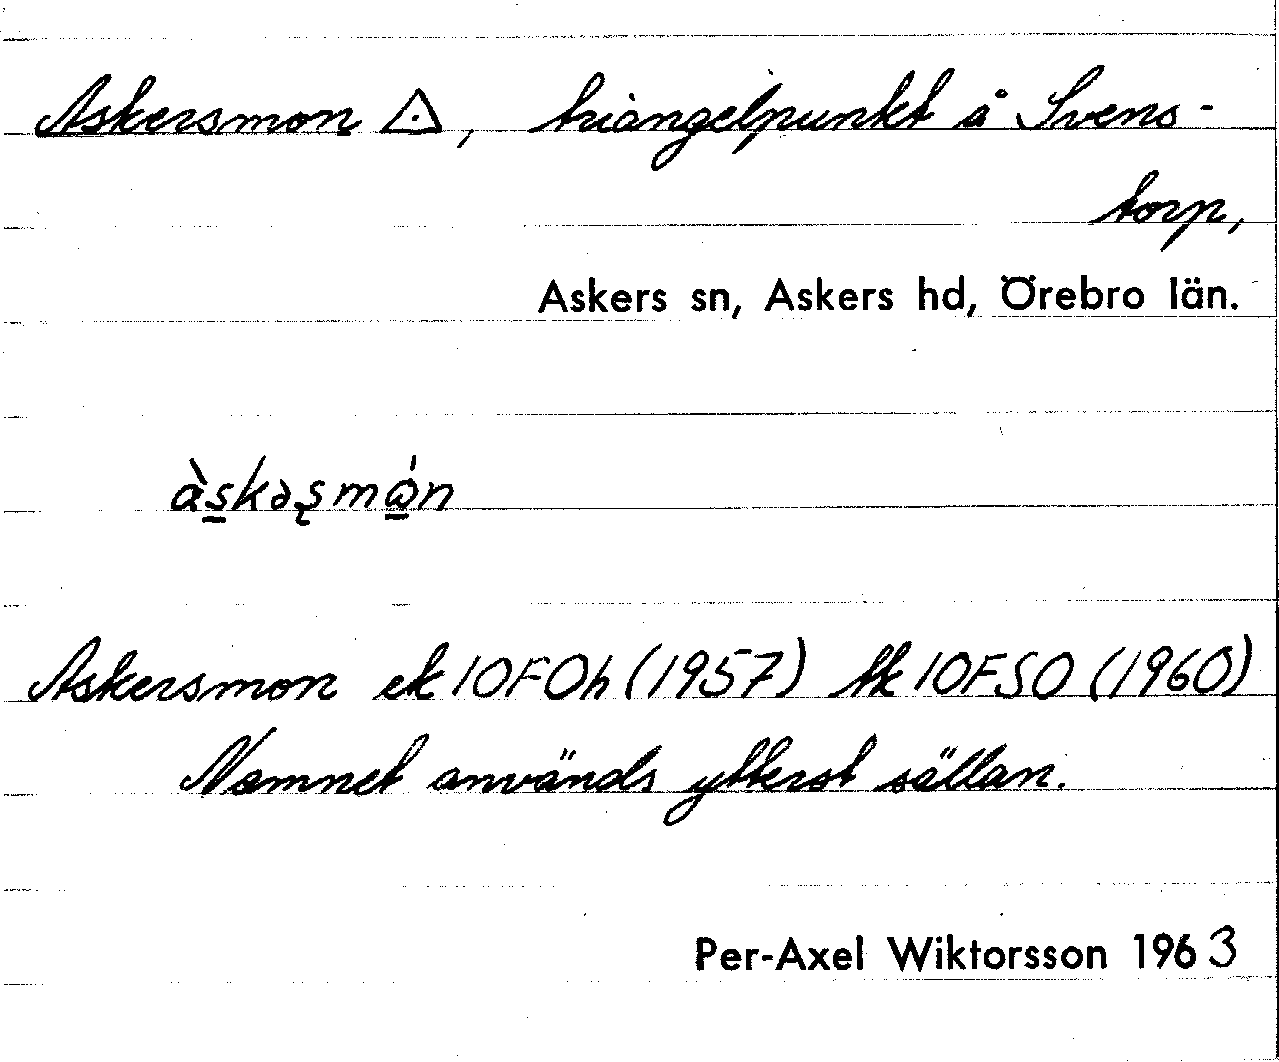 Askersmon △, triangelpunkt å Svens-
torp,
Askers sn, Askers hd, Örebro län.
às̲kəʂmώ̲n
Askersmon ek 10FOh (1957) tk 10FSO (1960)
Namnet används ytterst sällan.
Per-Axel Wiktorsson 1963